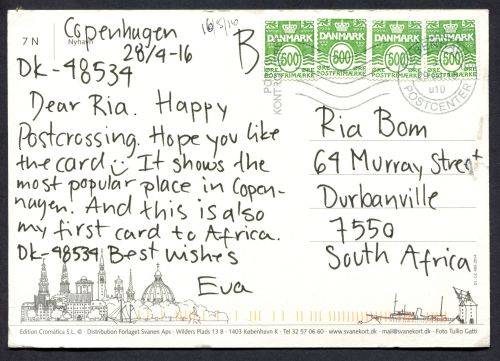 Copenhagen
16/5/16
7 N Nyhavn
28/4-16
B
DK-48534
DANMARK DANMARK DANMARK DANMARK
500 500 500 500
ØRE ØRE ØRE ØRE
POSTFRIMÆRKE POSTFRIMÆRKE POSTFRIMÆRKE POSTFRIMÆRKE
POSTCENTER
Dear Ria. Happy
Postcrossing. Hope you like
the card It shows the
most popular place in Copen-
hagen. And this is also
my first card to Africa.
DK-48534 Best wishes
Eva
Ria Bom
64 Murray Street
Durbanville
7550
South Africa
Edition Cromàtica S.L. © - Distribution Forlaget Svanen Aps - Wilders Plads 13 B - 1403 København K - Tel 32 57 06 60 - www.svanekort.dk - mail@svanekort.dk - Foto Tullio Gatti